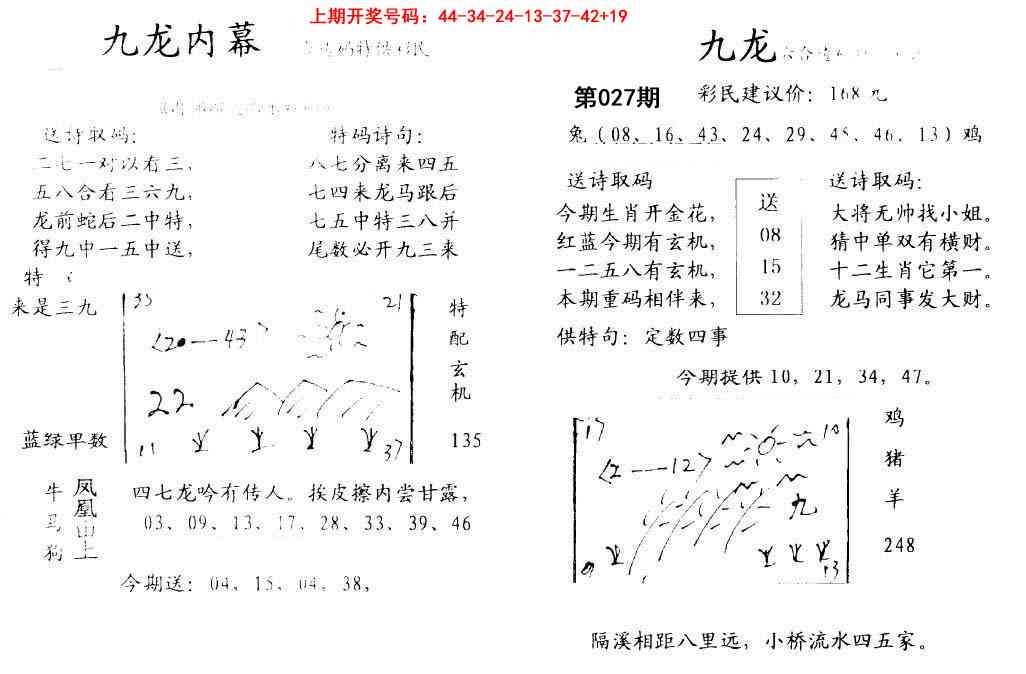 上期开奖号码：44-34-24-13-37-42+19
九龙内幕
送诗取码：
二七一对以有三，
五八合看三六九，
龙前蛇后二中特，
得九中一五中送，
特码诗句：
八七分离来四五
七四来龙马跟后
七五中特三八并
尾数必开九三来
特
来是三九
蓝绿早数
35
21
<20—43>
22
11
37
特
配
玄
机
135
牛
马
狗
凤
凰
山
上
四七龙吟有传人。挨皮擦内尝甘露，
03、09、13、17、28、33、39、46
今期送：04、15、04、38，
九龙
第027期
彩民建议价：168元
兔（08、16、43、24、29、45、46、13）鸡
送诗取码
今期生肖开金花，
红蓝今期有玄机，
一二五八有玄机，
本期重码相伴来，
送
08
15
32
送诗取码：
大将无帅找小姐。
猜中单双有横财。
十二生肖它第一。
龙马同事发大财。
供特句：定数四事
今期提供10，21，34，47。
17
10
<2—12>
九
13
鸡
猪
羊
248
隔溪相距八里远，小桥流水四五家。